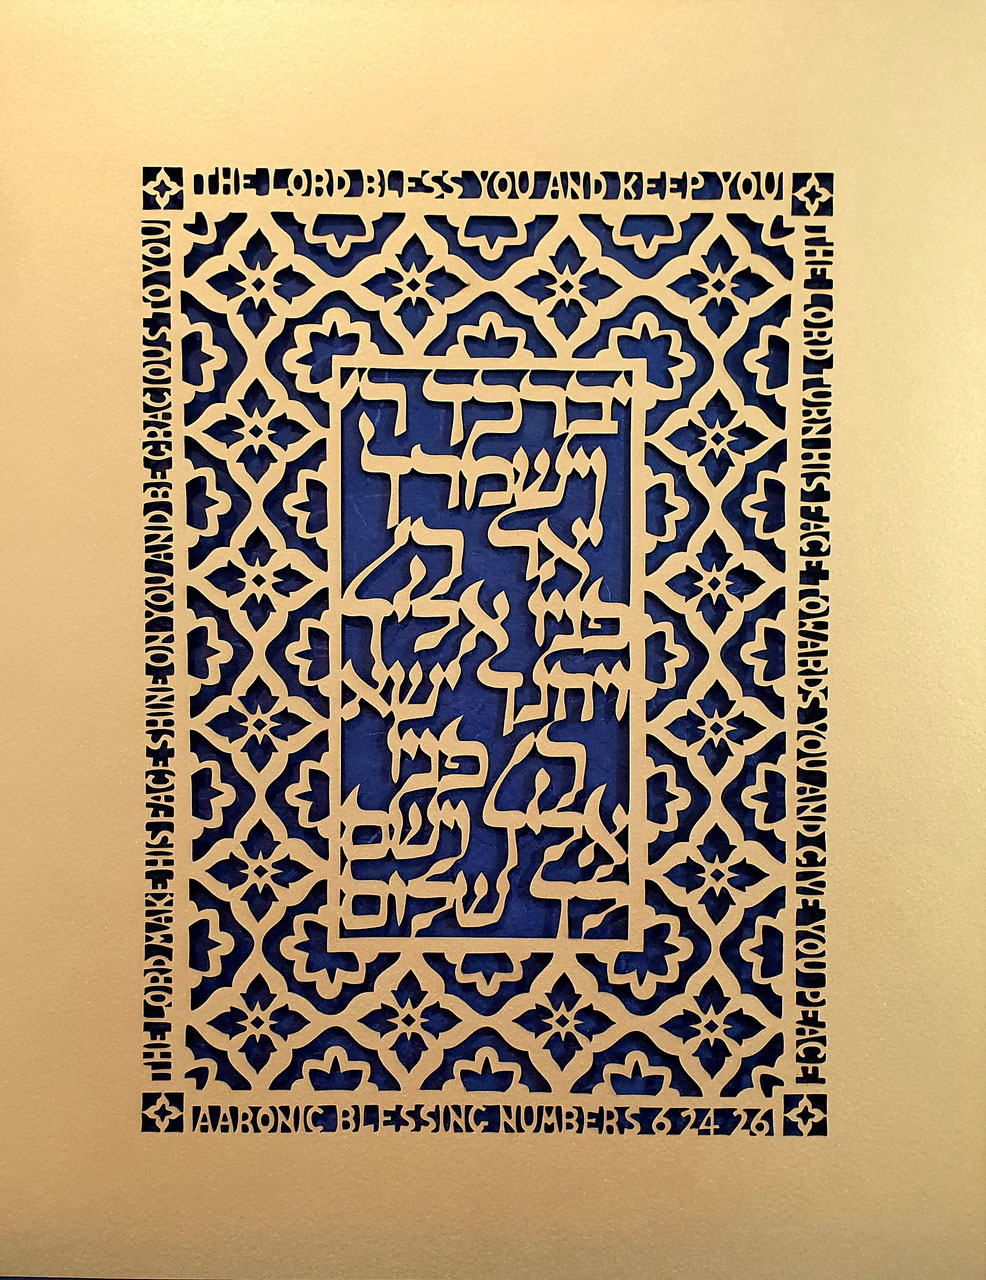 THE LORD BLESS YOU AND KEEP YOU
THE LORD MAKE HIS FACE SHINE ON YOU AND BE GRACIOUS TO YOU
THE LORD TURN HIS FACE TOWARDS YOU AND GIVE YOU PEACE
יברכך ה׳
וישמרך
יאר ה׳
פניו אליך
ויחנך ישא
ה׳ פניו
אליך וישם
לך שלום
AARONIC BLESSING NUMBERS 6 24 26